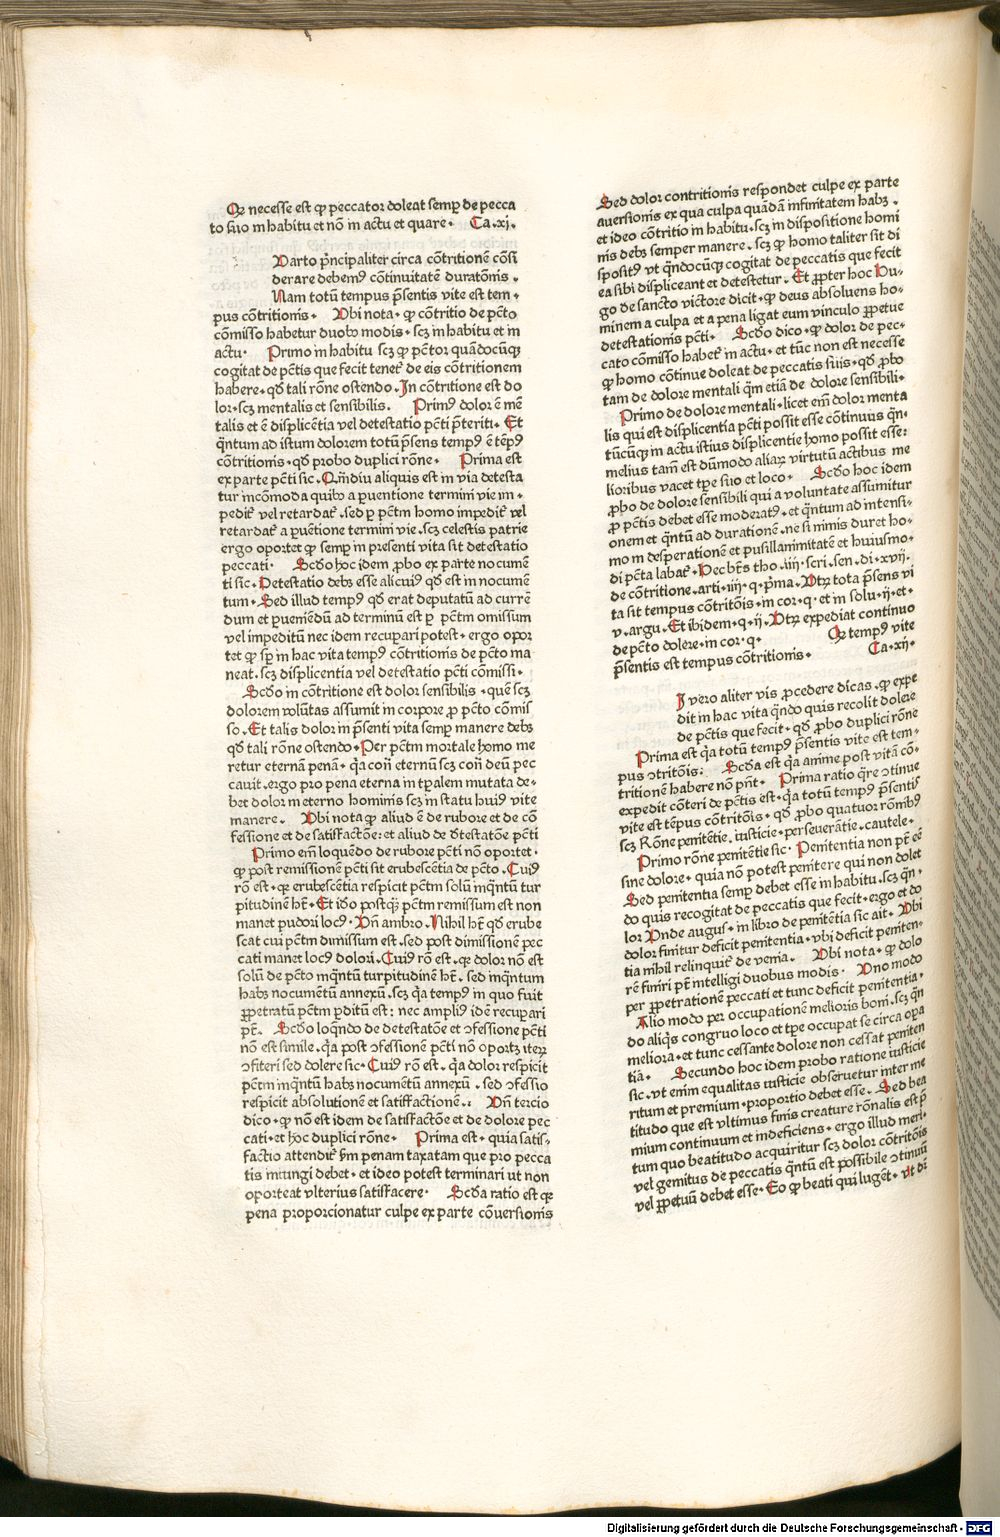 Qꝛ necesse est ꝙ peccatoꝛ doleat semꝑ de pecca
to suo in habitu et nõ in actu et quare. Ca.xi.
Uarto pͥncipaliter circa cõtritionẽ cõsi
derare debemꝰ cõtinuitatẽ duratõnis.
Nam totũ tempus p̃sentis vite est tem-
pus cõtritionis. Ubi nota. ꝙ cõtritio de pctõ
cõmisso habetur duobꝰ modis. scꝫ in habitu et in
actu. Primo in habitu scꝫ ꝙ pctõr quãdocũqꝫ
cogitat de pctĩs que fecit tenet᷑ de eis cõtritionem
habere. qđ tali rõne ostendo. In cõtritione est do
lor. scꝫ mentalis et sensibilis. Primꝰ dolor ẽ mẽ
talis et ẽ displicẽtia vel detestatio pctĩ p̃teriti. Et
qͣntum ad istum dolorem totũ p̃sens tempꝰ ẽ tẽpꝰ
cõtritionis. qđ probo duplici rõne. Prima est
ex parte pctĩ sic. Qm̃diu aliquis est in via detesta
tur incõmoda quibꝰ a ꝑuentione termini vie im-
pedit᷑ vel retardat᷑. sed ꝑ pctm̃ homo impedit᷑ vel
retardat᷑ a ꝑuẽtione termini vie. scꝫ celestis patrie
ergo oportet ꝙ semꝑ in presenti vita sit detestatio
peccati. Scđo hoc idem ꝓbo ex parte nocumẽ
ti sic. Detestatio debꝫ esse alicuiꝰ qđ est in nocumẽ
tum. Sed illud tempꝰ qđ erat deputatũ ad currẽ
dum et ꝑueniẽdũ ad terminũ est ꝑ pctm̃ omissum
vel impeditũ nec idem recuꝑari potest. ergo opor
tet ꝙ sꝑ in hac vita tempꝰ cõtritionis de pctõ ma
neat. scꝫ displicentia vel detestatio pctĩ cõmissi.
Scđo in cõtritione est dolor sensibilis. quẽ scꝫ
dolorem volũtas assumit in corpore ꝓ pctõ cõmis
so. Et talis dolor in p̃senti vita semꝑ manere debꝫ
qđ tali rõne ostendo. Per pctm̃ mortale homo me
retur eternã penã. qͥa cõtr̃ eternũ scꝫ cõtr̃ deũ pec
cauit. ergo pro pena eterna in tꝑalem mutata de-
bet dolor in eterno hominis scꝫ in statu huiꝰ vite
manere. Ubi nota ꝙ aliud ẽ de rubore et de cõ
fessione et de satisfactõne: et aliud de dꝫtestatõe pctĩ
Primo em̃ loquẽdo de rubore pctĩ nõ oportet.
ꝙ post remissionẽ pctĩ sit erubescẽtia de pctõ. Cuiꝰ
rõ est. qꝛ erubescẽtia respicit pctm̃ solũ inqͣntũ tur
pitudinẽ hꝫt. Et iđo postqͣꝫ pctm̃ remissum est non
manet pudori locꝰ. Vñ ambro. Nihil hꝫt qđ erube
scat cui pctm̃ dimissum est. sed post dimissionẽ pec
cati manet locꝰ dolori. Cuiꝰ rõ est. qꝛ dolor nõ est
solũ de pctõ inqͣntũ turpitudinẽ hꝫt. sed inqͣntum
habꝫ nocumẽtũ annexũ. scꝫ qͥa tempꝰ in quo fuit
ꝑpetratũ pctm̃ ꝑditũ est: nec ampliꝰ idẽ recuꝑari
pt̃. Scđo loqͣndo de detestatõe et ↄfessione pctĩ
nõ est simile. qͥa post ↄfessionẽ pctĩ nõ oportꝫ iteꝝ
ↄfiteri sed dolere sic. Cuiꝰ rõ est. qͥa dolor respicit
pctm̃ inqͣntũ habꝫ nocumẽtũ annexũ. sed ↄfessio
respicit absolutionẽ et satisfactionẽ.: Vñ tercio
dico. ꝙ nõ est idem de satisfactõe et de dolore pec
cati. et hoc duplici rõne. Prima est. quia satis-
factio attendit᷑ ẜm penam taxatam que pro pecca
tis iniungi debet. et ideo potest terminari ut non
oporteat vlterius satisfacere. Scđa ratio est qꝛ
pena proporcionatur culpe ex parte cõuersionis
Sed dolor contritionis respondet culpe ex parte
auersionis ex qua culpa quãdã infinitatem habꝫ.
et ideo cõtritio in habitu. scꝫ in dispositione homi
nis debꝫ semper manere. scꝫ ꝙ homo taliter sit di
spositꝰ vt qͣndocũqꝫ cogitat de peccatis que fecit
ea sibi displiceant et detestetur. Et ꝓpter hoc Hu-
go de sancto victore dicit. ꝙ deus absoluens ho-
minem a culpa et a pena ligat eum vinculo ꝑpetue
detestationis pctĩ. Scđo dico. ꝙ dolor de pec-
cato cõmisso habet᷑ in actu. et tũc non est necesse
ꝙ homo cõtinue doleat de peccatis suis. qđ ꝓbo
tam de dolore mentali qͣm etiã de dolore sensibili.
Primo de dolore mentali. licet em̃ dolor menta
lis qui est displicentia pctĩ possit esse cõtinuus qͣn-
tũcũqꝫ in actu istius displicentie homo possit esse:
melius tam̃ est dũmodo aliaꝝ virtutũ actibus me
lioribus vacet tꝑe suo et loco. Scđo hoc idem
ꝓbo de dolore sensibili qui a voluntate assumitur
ꝓ pctĩs debet esse moderatꝰ. et qͣntum ad intensi-
onem et qͣntũ ad durationẽ. ne si nimis duret ho-
mo in desperationẽ et pusillanimitatẽ et huiusmo-
di pctã labat᷑. Pec bt̃s tho. iiij. scri. sen. di. xvij.
de cõtritione. arti. iiij. q. pͥma. Utꝝ tota p̃sens vi
ta sit tempus cõtritõis. in cor. q. et in solu. ij. et.
v. argu. Et ibidem. q. ij. Utꝝ expediat continuo
de pctõ dolere. in cor. q. Qꝛ tempꝰ vite
p̃sentis est tempus cõtritionis. Ca.xij.
I vero aliter vis ꝓcedere dicas. ꝙ expe
dit in hac vita qͣndo quis recolit dolere
de pctĩs que fecit. qđ ꝓbo duplici rõne
Prima est qͥa totũ tempꝰ p̃sentis vite est tem-
pus ↄtritõis: Scđa est qͥa anime post vitã cõ-
tritionẽ habere nõ pñt. Prima ratio qͣre ↄtinue
expedit cõteri de pctĩs est. qͥa totũ tempꝰ p̃sentis
vite est tẽpus cõtritõis. qđ ꝓbo quatuor rõnibꝰ
scꝫ Rõne penitẽtie. iusticie. perseuerãtie. cautele.
Primo rõne penitẽtie sic. Penitentia non pt̃ eẽ
sine dolore. quia nõ potest penitere qui non dolet
Sed penitentia semꝑ debet esse in habitu. scꝫ qͣn-
do quis recogitat de peccatis que fecit. ergo et do
lor Unde augus. in libro de penitẽtia sic ait. Ubi
dolor finitur deficit penitentia. vbi deficit peniten-
tia nihil relinquit᷑ de venia. Ubi nota. ꝙ dolo
rẽ finiri pt̃ intelligi duobus modis. Uno modo
per ꝑpetrationẽ peccati et tunc deficit penitentia.
Alio modo per occupationẽ melioris boni. scꝫ qͣn
do aliqͥs congruo loco et tꝑe occupat se circa oꝑa
meliora. et tunc cessante dolore non cessat peniten
tia. Secundo hoc idem probo ratione iusticie
sic. vt enim equalitas iusticie obseruetur inter me
ritum et premium. proportio debet esse. Sed bea
titudo que est vltimus finis creature rõnalis est p̃
mium continuum et indeficiens. ergo illud meri-
tum quo beatitudo acquiritur scꝫ dolor cõtritõis
vel gemitus de peccatis qͣntũ est possibile ↄtinuũ
vel ꝑpetuũ debet esse. Eo ꝙ beati qui lugent. vt dr̃
Digitalisierung gefördert durch die Deutsche Forschungsgemeinschaft - DFG